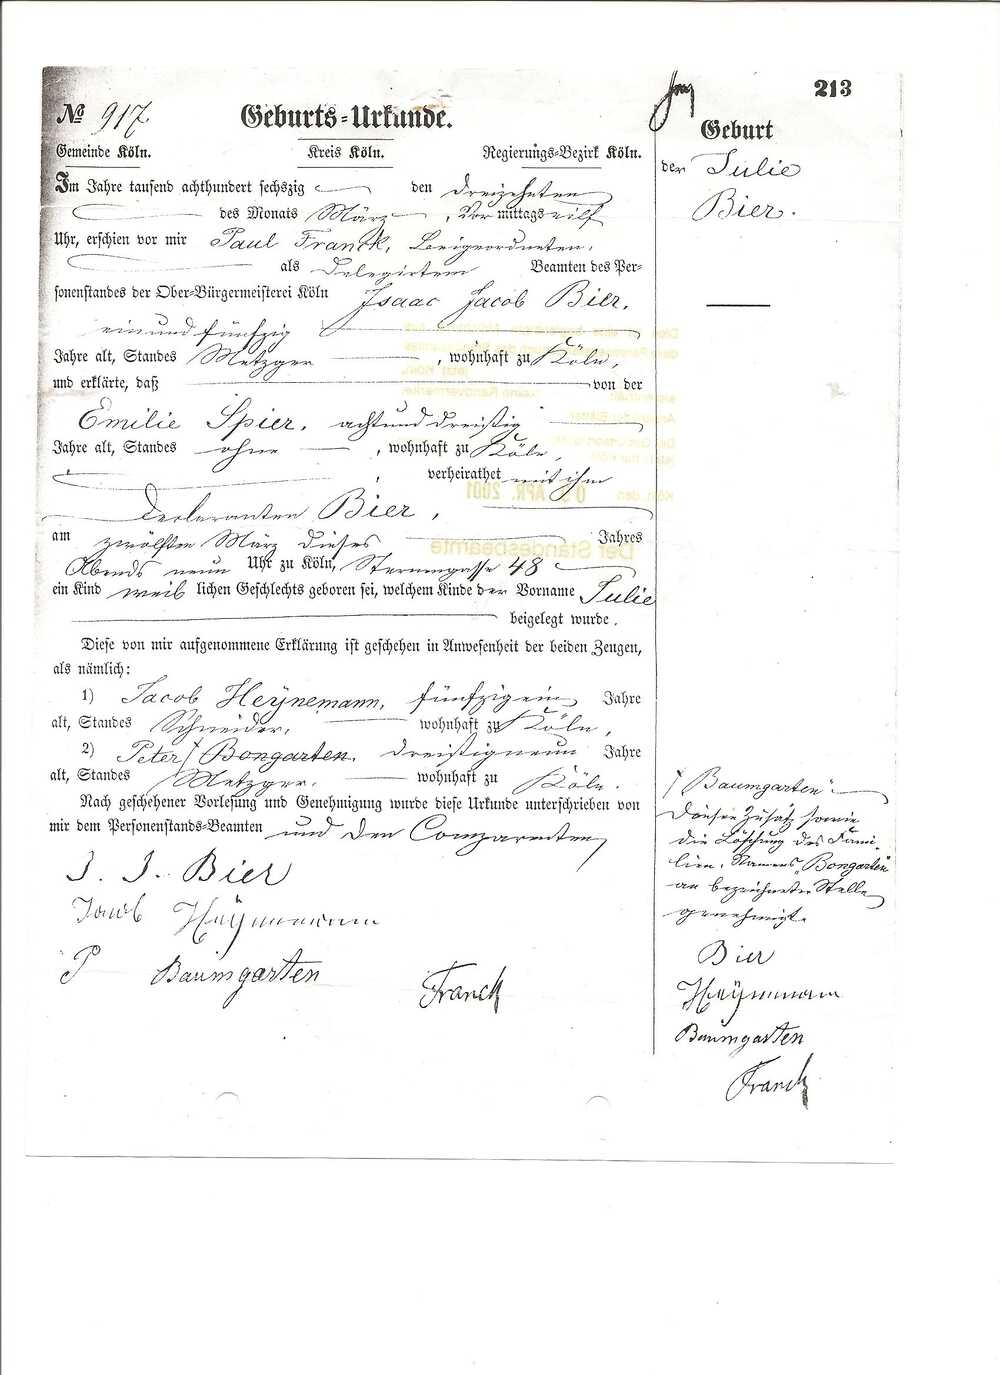 213
№ 917.
Geburts-Urkunde.
Gemeinde Köln. Kreis Köln. Regierungs-Bezirk Köln.
Im Jahre tausend achthundert sechszig den dreizehnten
des Monats März, Vor mittags eilf
Uhr, erschien vor mir Paul Franck, Beigeordneten,
als delegirtem Beamten des Per-
sonenstandes der Ober-Bürgermeisterei Köln Isaac Jacob Bier,
ein und fünfzig
Jahre alt, Standes Metzger, wohnhaft zu Köln,
und erklärte, daß von der
Emilie Spier, acht und dreißig
Jahre alt, Standes ohne, wohnhaft zu Köln,
verheirathet mit ihm
Declaranten Bier,
am zwölften März dieses Jahres
Abends neun Uhr zu Köln, Sternengasse 48
ein Kind weib lichen Geschlechts geboren sei, welchem Kinde der Vorname Julie
beigelegt wurde.
Diese von mir aufgenommene Erklärung ist geschehen in Anwesenheit der beiden Zeugen,
als nämlich:
1) Jacob Heÿnemann, fünfzig ein Jahre
alt, Standes Schneider, wohnhaft zu Köln,
2) Peter /Bongarten, dreißig neun Jahre
alt, Standes Metzger, wohnhaft zu Köln.
Nach geschehener Vorlesung und Genehmigung wurde diese Urkunde unterschrieben von
mir dem Personenstands-Beamten und den Comparenten
J. J. Bier
Jacob Heÿnemann
P Baumgarten
Franck
Geburt
der Julie
Bier.
/ Baumgarten".
Dieser Zusatz sowie
die Löschung des Fami-
lien Namens „Bongarten"
an bezeichneter Stelle
genehmigt.
Bier
Heÿnemann
Baumgarten
Franck
Der Standesbeamte
Köln, den 0 APR. 2001